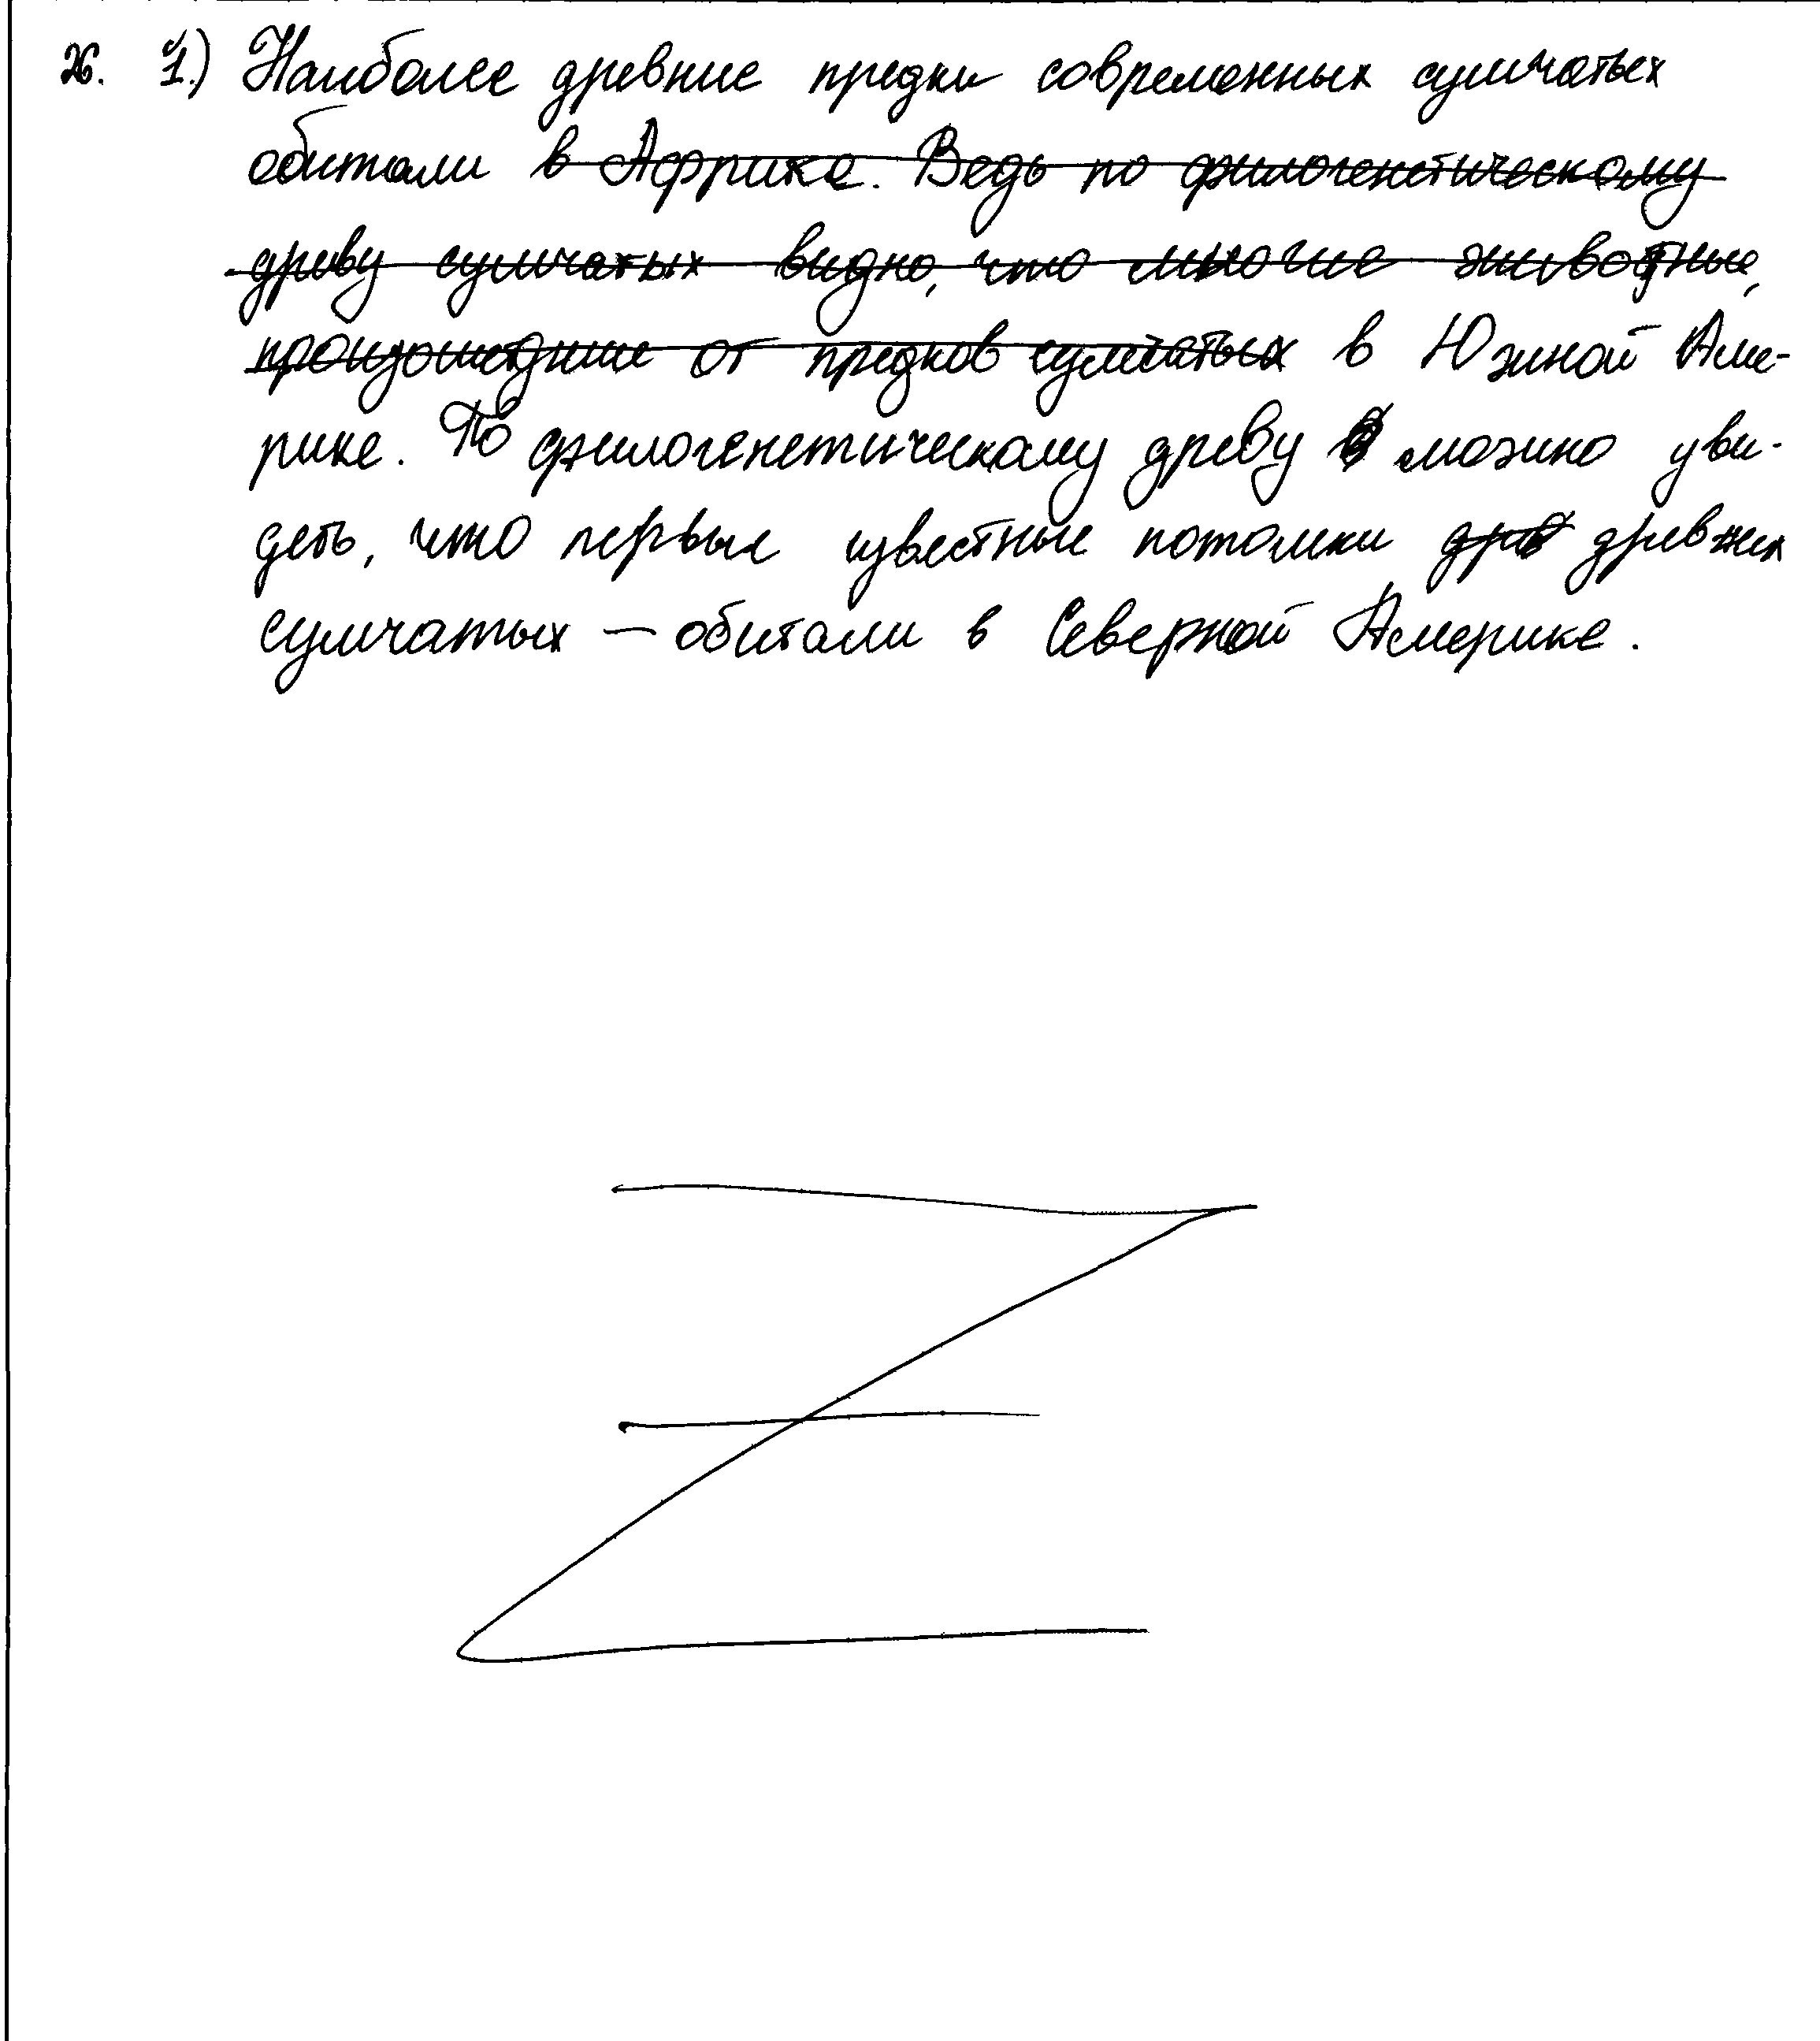 26. 1.) Наиболее древние предки современных сумчатых
обитали в Африке. Ведь по филогенетическому
древу сумчатых видно, что многие животные,
произошедшие от предков сумчатых в Южной Аме-
рике. По филогенетическому древу в можно уви-
деть, что первые известные потомки дрв древних
сумчатых — обитали в Северной Америке.